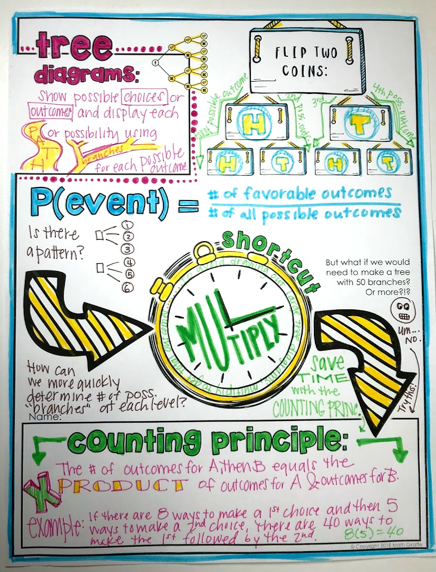 tree
diagrams:
show possible choices or
outcomes and display each
PATH or possibility using
branches
for each possible
outcome
FLIP TWO
COINS:
H
T
H
T
H
T
4th poss. outcome
P(event) = # of favorable outcomes
# of all possible outcomes
Is there
a pattern?
1
2
3
4
5
6
shortcut
MULTIPLY
But what if we would
need to make a tree
with 50 branches?
Or more?!?
um...
NO.
Try this!
How can
we more quickly
determine # of poss.
"branches" at each level?
Name:
SAVE
TIME
with the
COUNTING PRINC
counting principle:
The # of outcomes for A, then B equals the
PRODUCT of outcomes for A & outcomes for B.
example: If there are 8 ways to make a 1st choice and then 5
ways to make a 2nd choice, there are 40 ways to
make the 1st followed by the 2nd. 8(5)=40